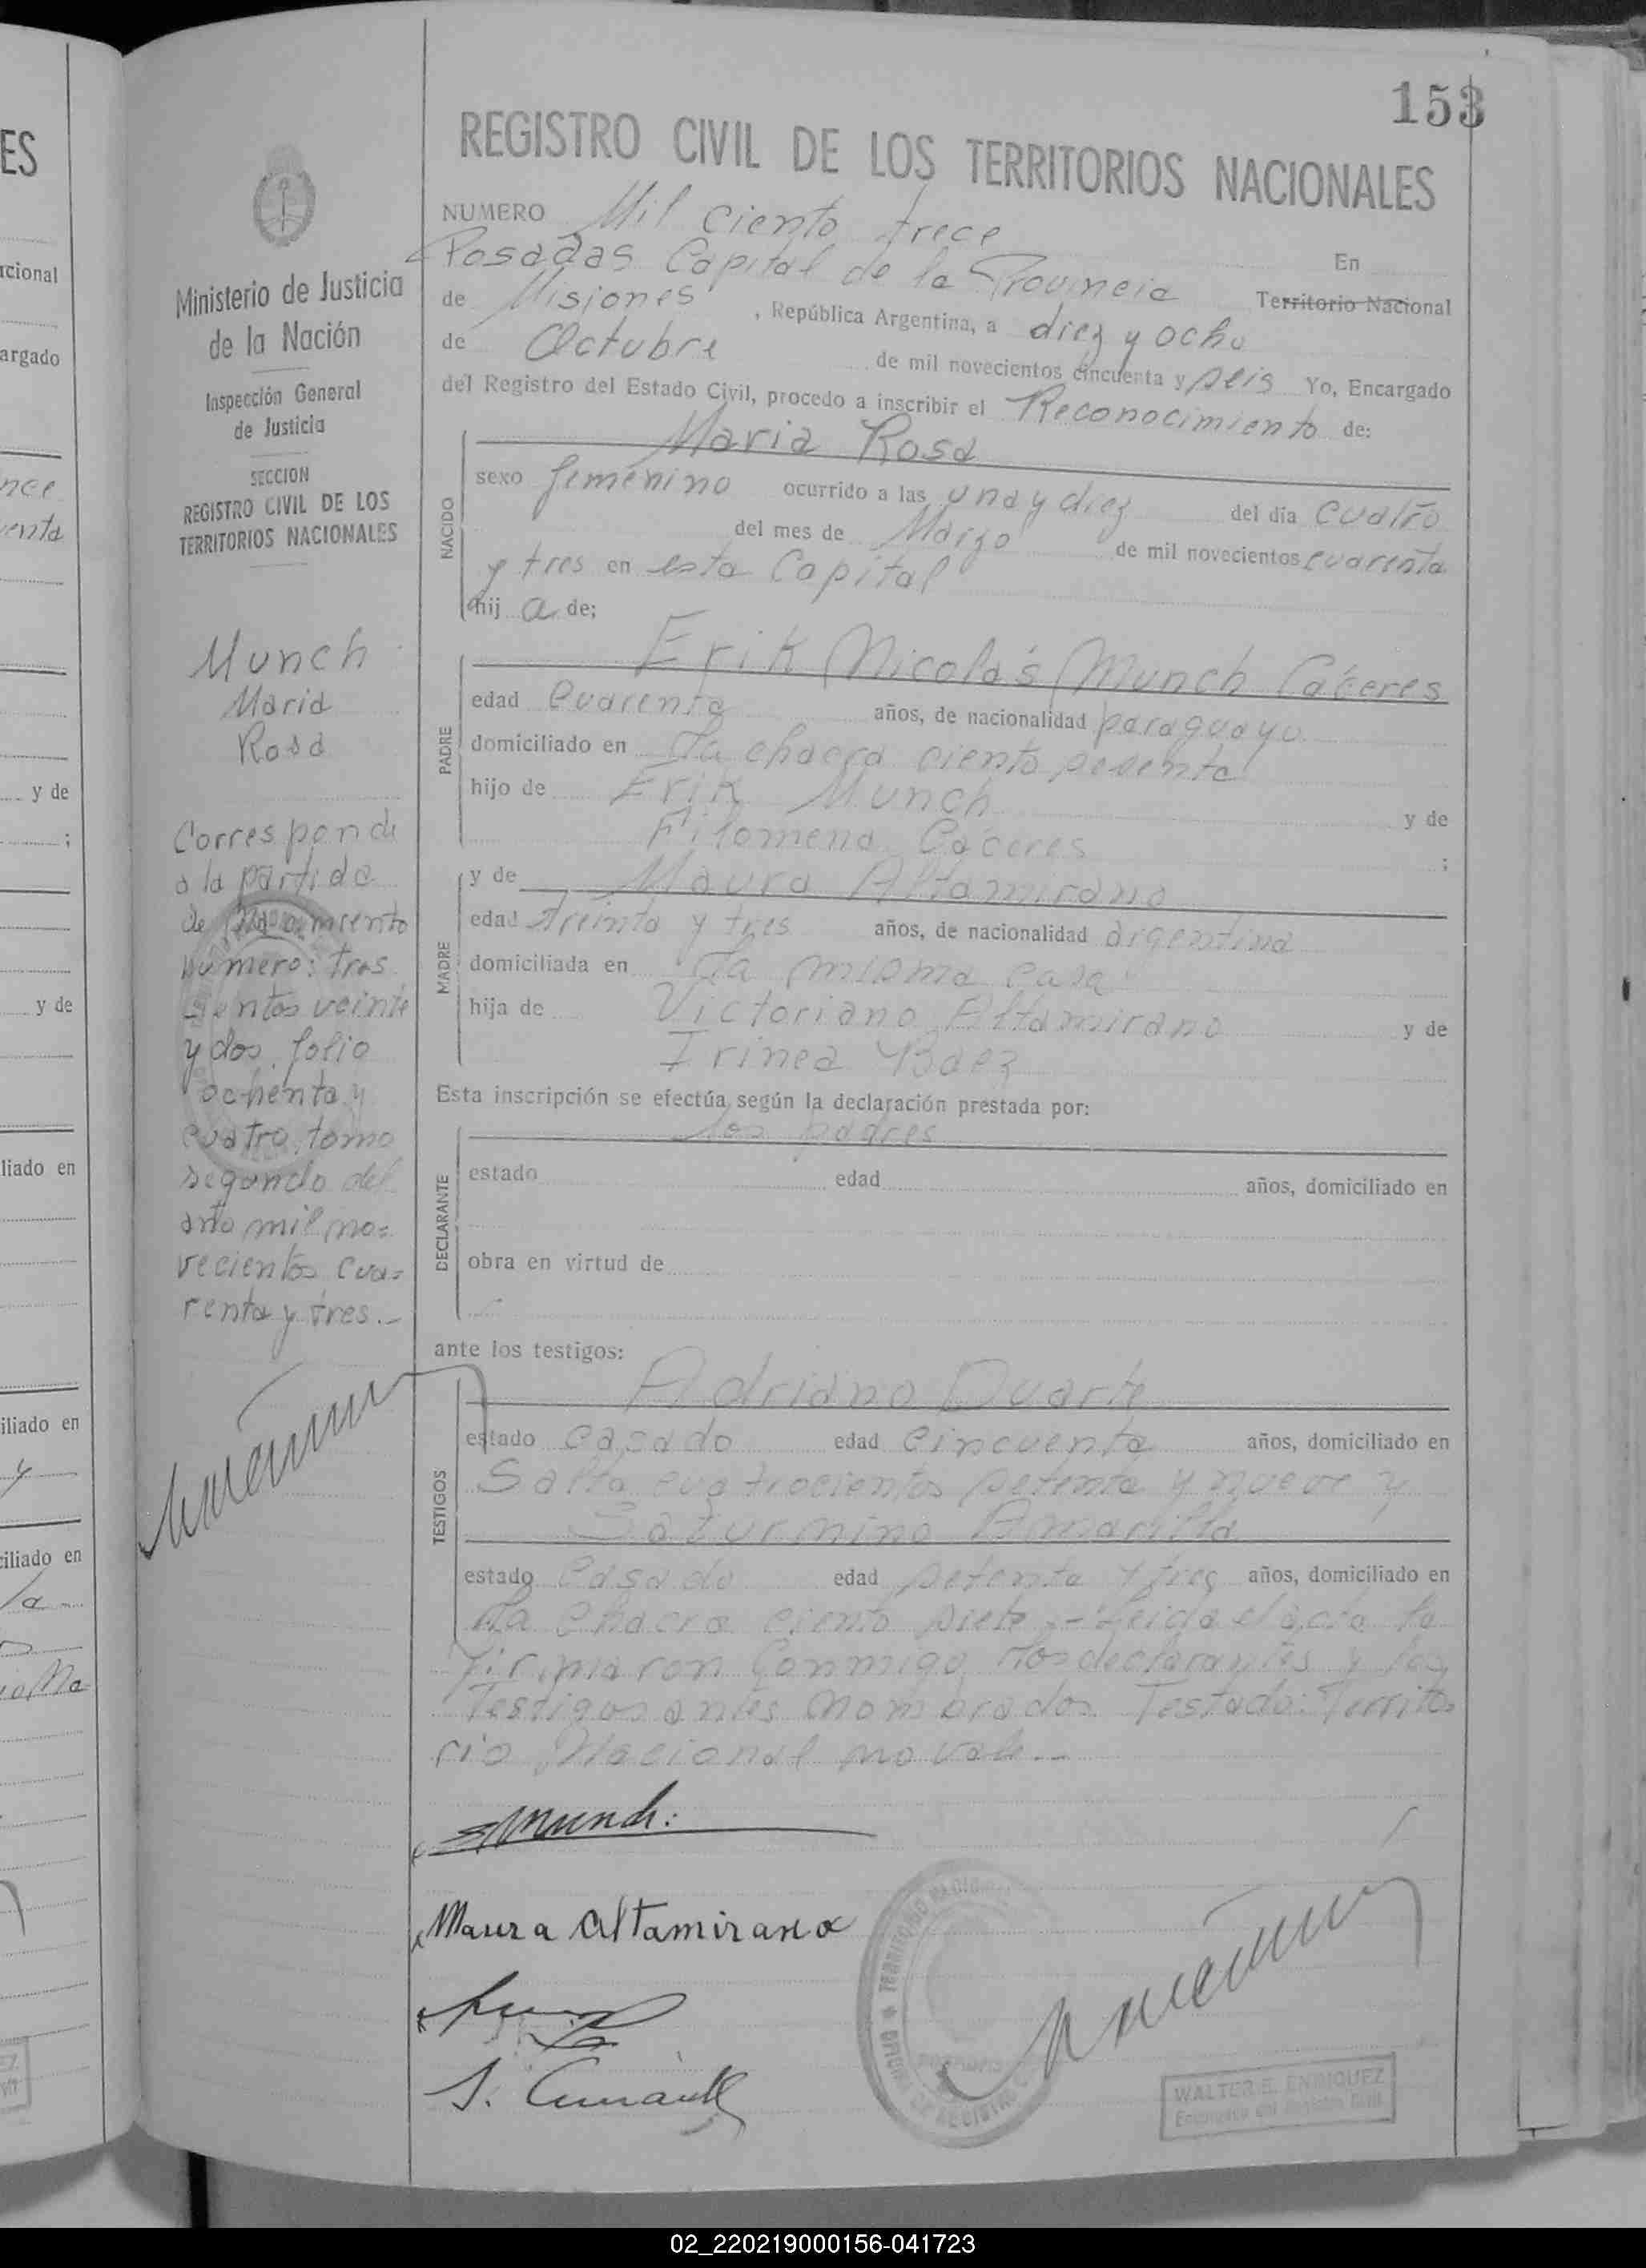 153
REGISTRO CIVIL DE LOS TERRITORIOS NACIONALES
NUMERO Mil ciento trece
En
Posadas Capital de la Provincia
de Misiones Territorio Nacional
, República Argentina, a diez y ocho
de Octubre de mil novecientos cincuenta y seis Yo, Encargado
del Registro del Estado Civil, procedo a inscribir el Reconocimiento de:
Maria Rosa
NACIDO
sexo femenino ocurrido a las una y diez del día cuatro
del mes de Marzo de mil novecientos cuarenta
y tres en esta Capital
hij a de;
Erik Nicolás Munch Cáceres
PADRE
edad cuarenta años, de nacionalidad paraguayo
domiciliado en la chacra ciento sesenta
hijo de Erik Munch y de
Filomena Cáceres ;
y de Maura Altamirano
MADRE
edad treinta y tres años, de nacionalidad argentina
domiciliada en la misma casa
hija de Victoriano Altamirano y de
Irinea Baez
Esta inscripción se efectúa según la declaración prestada por:
los padres
DECLARANTE
estado edad años, domiciliado en
obra en virtud de
ante los testigos:
Adriano Duarte
TESTIGOS
estado casado edad cincuenta años, domiciliado en
Salta cuatrocientos setenta y nueve y
Saturnino Amarilla
estado casado edad setenta y tres años, domiciliado en
la chacra ciento siete.- Leida el acta la
firmaron conmigo los declarantes y los
testigos antes nombrados. Testado: Territo
rio Nacional no vale.-
Munch.
Maura Altamirano
WALTER E. ENRIQUEZ
Encargado del Registro Civil
Ministerio de Justicia
de la Nación
Inspección General
de Justicia
SECCION
REGISTRO CIVIL DE LOS
TERRITORIOS NACIONALES
Munch
Maria
Rosa
Corresponde
a la partida
de Nacimiento
número: tres
cientos veinte
y dos, folio
ochenta y
cuatro, tomo
segundo del
año mil no=
vecientos cua=
renta y tres.-
ES
acional
argado
y de
;
y de
liado en
iliado en
y
ciliado en
la
02_220219000156-041723